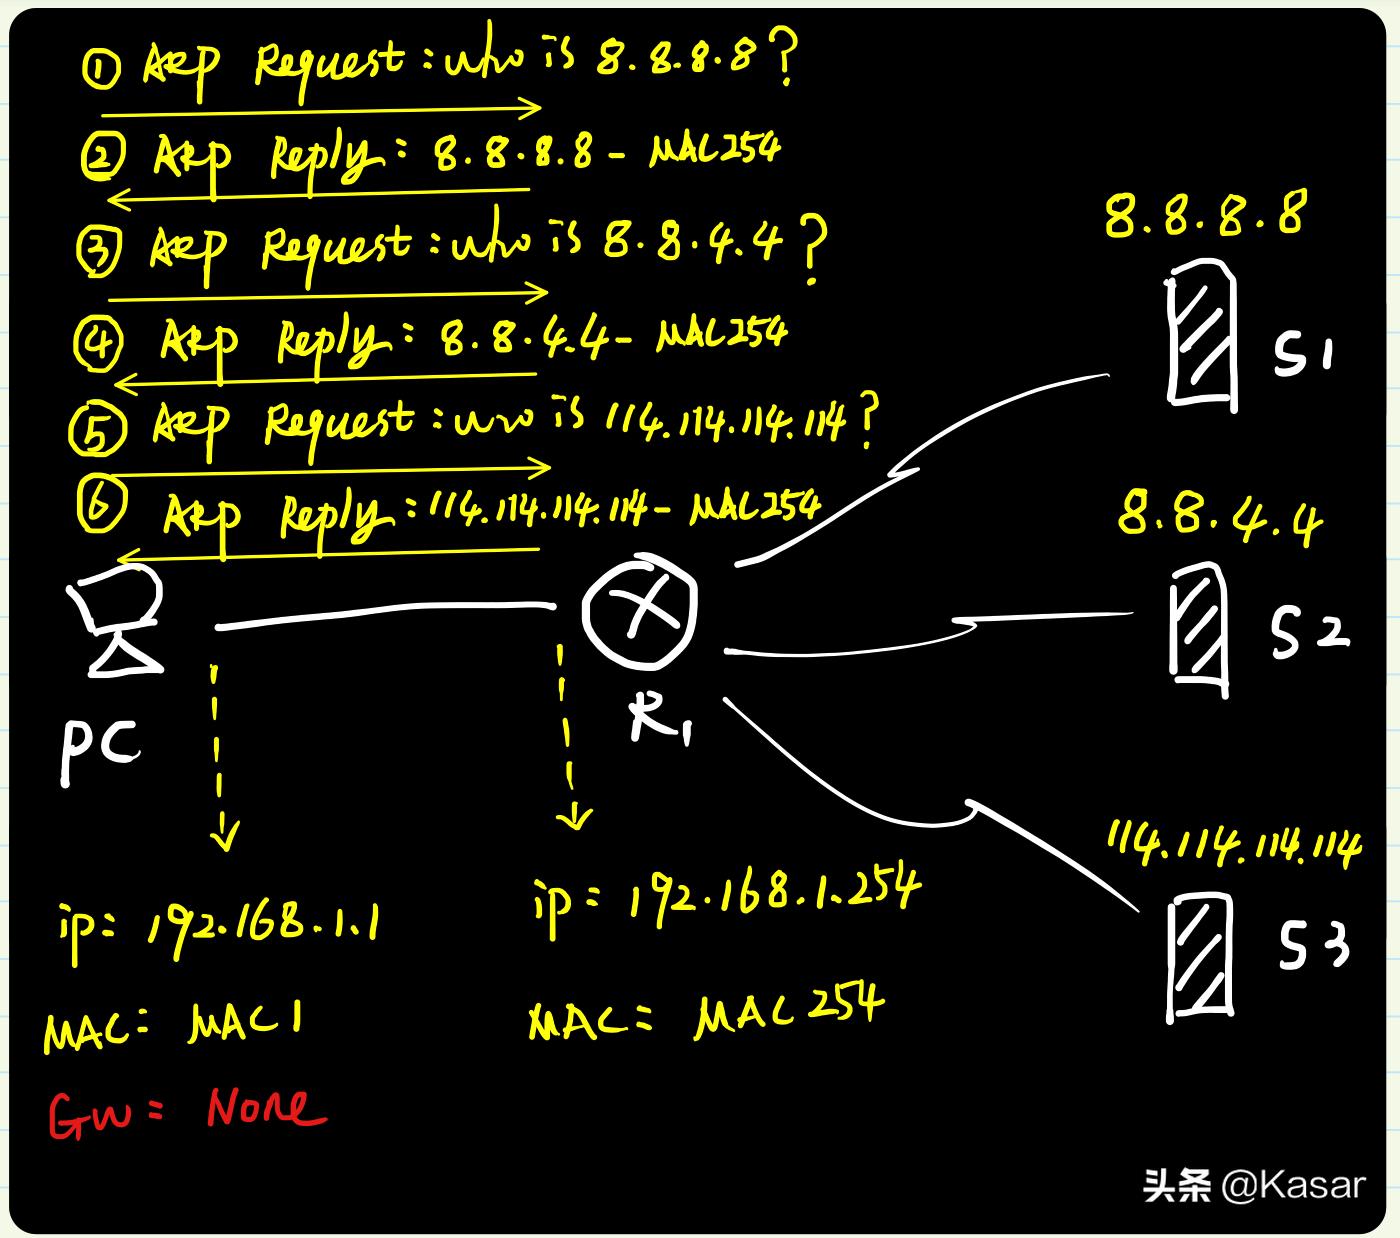 ① ARP Request: who is 8.8.8.8?
② ARP Reply: 8.8.8.8 - MAC254
③ ARP Request: who is 8.8.4.4?
④ ARP Reply: 8.8.4.4 - MAC254
⑤ ARP Request: who is 114.114.114.114?
⑥ ARP Reply: 114.114.114.114 - MAC254
8.8.8.8
S1
8.8.4.4
S2
PC
R1
114.114.114.114
S3
ip= 192.168.1.1
MAC= MAC1
GW= None
ip= 192.168.1.254
MAC= MAC254
头条 @Kasar